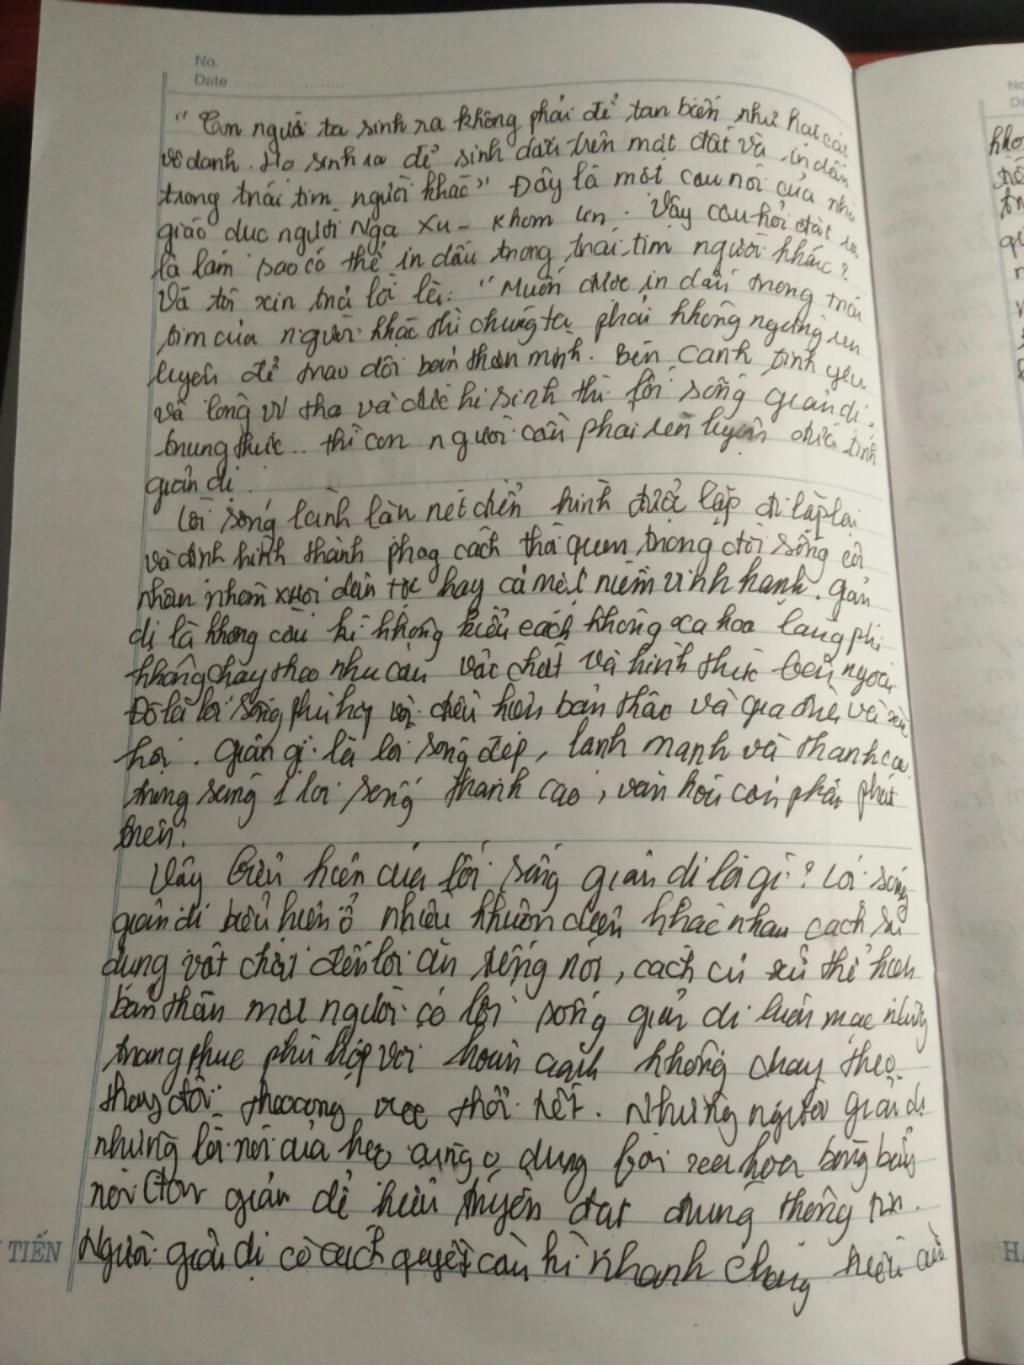 No.
Date
"Con người ta sinh ra không phải để tan biến như hạt cát
vô danh. Họ sinh ra để sinh dấu trên mặt đất và in dấu
trong trái tim người khác" Đây là một câu nói của nhà
giáo dục người Nga Xu - khom lin. Vậy câu hỏi đặt ra
là làm sao có thể in dấu trong trái tim người khác?
Và tôi xin trả lời là: "Muốn được in dấu trong trái
tim của người khác thì chúng ta phải không ngừng rèn
luyện để trao dồi bản thân mình. Bên cạnh tình yêu
và lòng vị tha và đức hi sinh thì lối sống giản dị,
trung thực.. thì con người cần phải rèn luyện đức tính
giản dị.
Lối sống là nét điển hình được lặp đi lặp lại
và định hình thành phong cách thói quen trong đời sống cá
nhân nhóm xã hội dân tộc hay cả
dị là không cầu kì không kiểu cách không xa hoa lãng phí
không chạy theo nhu cầu vật chất và hình thức bên ngoài
Đó là lối sống phù hợp với điều kiện bản thân và
hội. giản gị là lối sống đẹp, lành mạnh và thanh cao
1 lối sống thanh cao, văn hóa phát
triển.
Vậy biểu hiện của lối sống giản dị là gì? Lối sống
giản dị biểu hiện ở nhiều khuôn diện khác nhau cách sử
dụng vật chất đến lời ăn tiếng nói, cách cư xử thể hiện
bản thân một người có lối sống giản dị luôn mặc những
trang phục phù hợp với hoàn cảnh không chạy theo
thay đổi thời tiết. Những người giản dị
những lời nói của họ cũng dụng bởi xa hoa bóng bẩy
nói đơn giản dễ hiểu truyền đạt đúng thông tin.
TIẾN Người giản dị có cách quyết cầu kì nhanh chóng hiệu